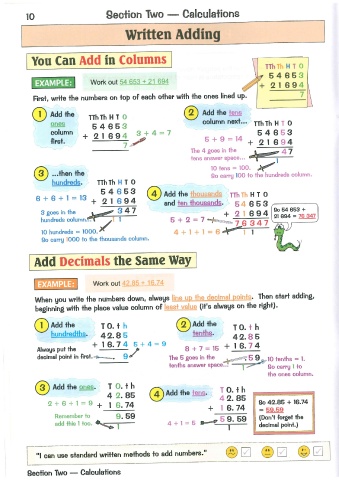 10
Section Two — Calculations
Written Adding
You Can Add in Columns
EXAMPLE:
Work out 54 653 + 21 694
TTh Th H T O
5 4 6 5 3
+ 2 1 6 9 4
7
First, write the numbers on top of each other with the ones lined up.
1 Add the ones column first.
TTh Th H T O
5 4 6 5 3
+ 2 1 6 9 4
7
3 + 4 = 7
2 Add the tens column next...
TTh Th H T O
5 4 6 5 3
+ 2 1 6 9 4
4 7
1
5 + 9 = 14
The 4 goes in the tens answer space...
10 tens = 100.
So carry 100 to the hundreds column.
3 ...then the hundreds.
TTh Th H T O
5 4 6 5 3
+ 2 1 6 9 4
3 4 7
1 1
6 + 6 + 1 = 13
3 goes in the hundreds column.
10 hundreds = 1000.
So carry 1000 to the thousands column.
4 Add the thousands and ten thousands.
TTh Th H T O
5 4 6 5 3
+ 2 1 6 9 4
7 6 3 4 7
1 1
5 + 2 = 7
4 + 1 + 1 = 6
So 54 653 + 21 694 = 76 347
Add Decimals the Same Way
EXAMPLE:
Work out 42.85 + 16.74
When you write the numbers down, always line up the decimal points. Then start adding,
beginning with the place value column of least value (it's always on the right).
1 Add the hundredths.
T O . t h
4 2 . 8 5
+ 1 6 . 7 4
. 9
5 + 4 = 9
Always put the decimal point in first.
2 Add the tenths.
T O . t h
4 2 . 8 5
+ 1 6 . 7 4
. 5 9
1
8 + 7 = 15
The 5 goes in the tenths answer space...
10 tenths = 1.
So carry 1 to the ones column.
3 Add the ones.
T O . t h
4 2 . 8 5
+ 1 6 . 7 4
9 . 5 9
1
2 + 6 + 1 = 9
Remember to add this 1 too.
4 Add the tens.
T O . t h
4 2 . 8 5
+ 1 6 . 7 4
5 9 . 5 9
1
4 + 1 = 5
So 42.85 + 16.74
= 59.59
(Don't forget the decimal point.)
"I can use standard written methods to add numbers."
Section Two — Calculations